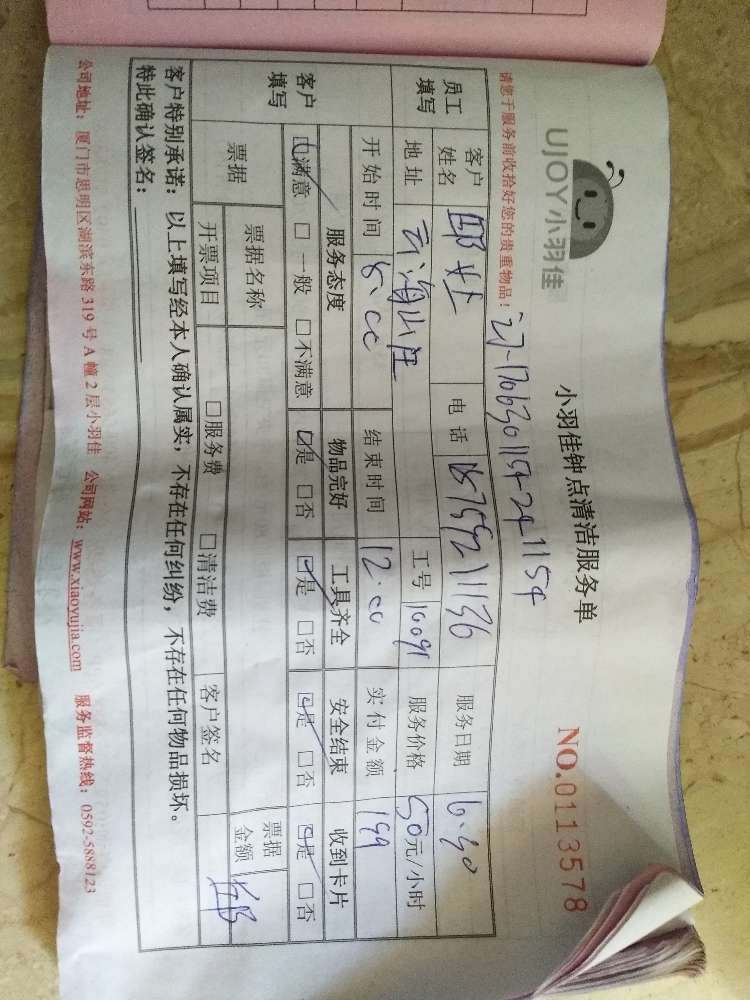 UJOY小羽佳
小羽佳钟点清洁服务单
NO.0113578
请您于服务前收拾好您的贵重物品！
员工填写
客户姓名
电话 15759211136
服务日期 6.30
地址 云海山庄
工号 10091
服务价格 50元/小时
开始时间 8.00
结束时间 12.00
实付金额 199
客户填写
服务态度 物品完好 工具齐全 安全结束 收到卡片
☑满意 □一般 □不满意 ☑是 □否 ☑是 □否 ☑是 □否 ☑是 □否
票据
票据名称
票据金额
开票项目 □服务费 □清洁费 客户签名
客户特别承诺：以上填写经本人确认属实，不存在任何纠纷，不存在任何物品损坏。
特此确认签名：
公司地址：厦门市思明区湖滨东路319号A幢2层小羽佳 公司网站：www.xiaoyujia.com 服务监督热线：0592-5888123